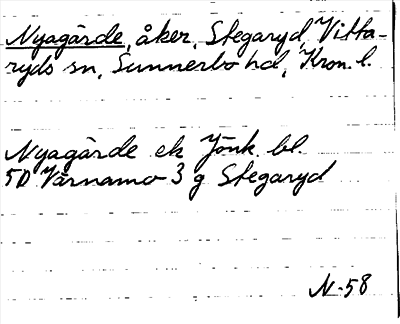 Nyagärde, åker, Stegaryd, Vitta-
ryds sn, Sunnerbo hd, Kron. l.
Nyagärde ek Jönk. bl.
5D Värnamo 3 g Stegaryd
N-58